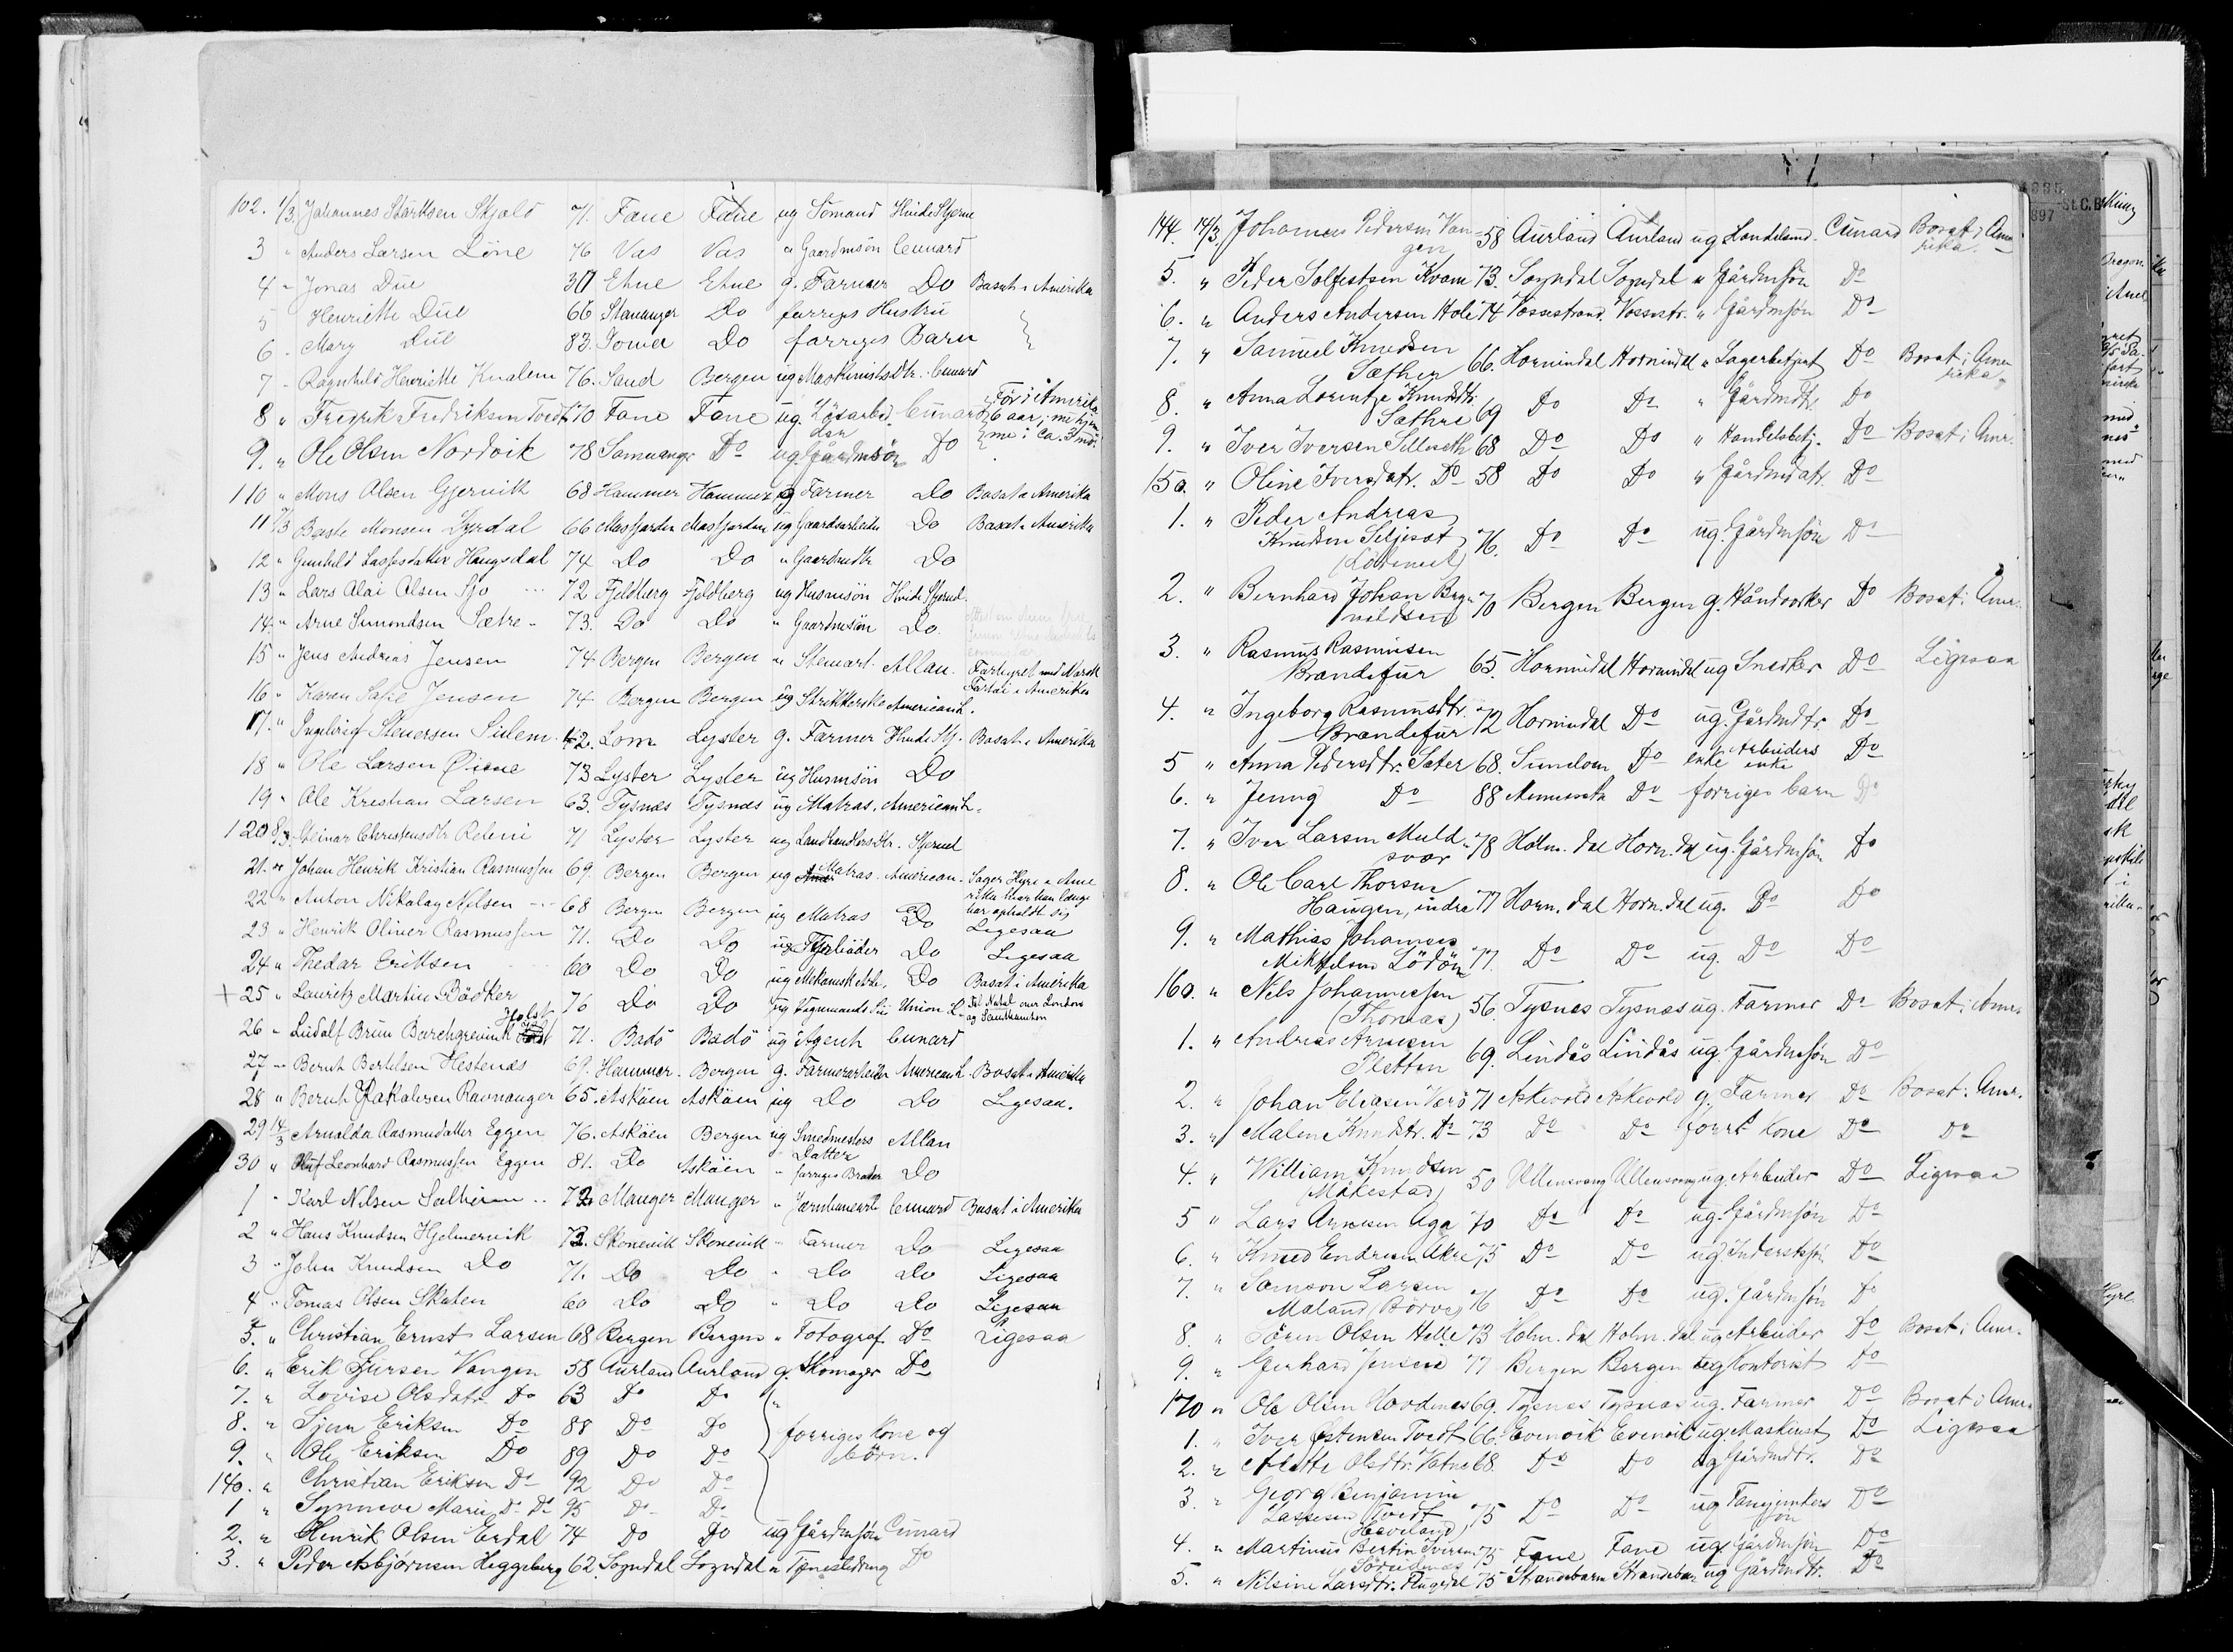 102. 1/3. Johannes Skjold 71. Fane Fane ug Sömand Hvide Stjerne
3 " Anders Larsen Löne 76 Vas Vas " Gaardmsön Cunard
4 " Jonas Due 30 Etne Etne g. Farmer Do Bosat i Amerika
5 Henriette Due 66 Stavanger Do forriges Hustru
6 - Mary Due 83. Do forriges Barn
7 - Ragnhild Henriette Kvalem 76. Sand Bergen ug Maskinistsdtr. Cunard
8 " Fredrik Fredriksen Tvedt 70 Fane Fane ug. Lösarbei- Cunard För i Amerika
der 6 aar; nu hjem-
me i ca. 3 md.
9. " Ole Olsen Nordvik 78 Samnanger Do ug Gårdmsön Do
110 " Mons Olsen Gjervik 68 Hammer Hammer g Farmer Do Bosat i Amerika
11 7/3 Baste Monsen Dyrdal 66 Masfjorden Masfjorden ug Gaardsarbeider Do Bosat i Amerika
12 " Gunhild Lassesdatter Haugsdal 74 Do Do " Gaardmdtr Do
13 " Lars Olai Olsen Sjo 72 Fjeldberg Fjeldberg ug Husmsön Hvide Stjerne
14. " Arne Simondsen Sætre - 73. Do Do " Gaardmsön Do.
15 " Jens Andreas Jensen 74 Bergen Bergen " Stewart Allan.
16 " Karen Sofie Jensen 74 Bergen Bergen ug Strikkerske American L.
17. " Ingebrigt Stenersen Sulem 42. Lom Lyster g. Farmer Hvide Stj. Bosat i Amerika
18 " Ole Larsen Øiene 73 Lyster Lyster ug Husmsön Do
19 " Ole Kristian Larsen 63. Tysnes Tysnes ug Matros. American L.
120 8/3. Christensdtr 71 Lyster Lyster ug Landhandlersdtr. Stjernel
21. " Johan Henrik Kristian Rasmussen 69. Bergen Bergen ug Matros. American- Söger Hyre i Ame
rika hvor han længe
har opholdt sig
22 " Anton Nikolay Nilsen 68 Bergen Bergen ug Matros Do Ligesaa
23 " Henrik Oliver Rasmussen 71. Do Do ug Fyrböder Do Ligesaa
24 " Thedor Eriksen 60 Do Do ug Mekanisk Arb. Do Bosat i Amerika
+ 25 " Lauritz Martin Bödker 76 Do Do ug Union L. Til Natal over London
og Southamton
26 " Ludolf Brun Borchgrevink Holst 71. Bodö Bodö ug Agent Cunard
27 " Bernt Bertelsen Hestenæs 69. Hammer. Bergen g. Farmerarbeider American L. Bosat i Amerika
28 " Bernt Ravnanger 65. Asköen Asköen ug Do Do Ligesaa.
29 14/3 Arnalda Rasmusdatter Eggen 76. Asköen Bergen ug Smedmesters Allan
Datter
30 " Leonhard Rasmussen Eggen 81. Do Asköen " forriges Broder Do
1 " Karl Nilsen Sælheim 72 Manger Manger " Cunard Bosat i Amerika
2 " Hans Knudsen Hjelmervik 73. Skonevik Skonevik " Farmer Do Ligesaa
3 " John Knudsen Do 71. Do Do " Do Do Ligesaa
4 " Tomas Olsen Skaten 60 Do Do " Do Do Ligesaa
5. " Christian Ernst Larsen 68 Bergen Bergen " Fotograf Do Ligesaa
6. " Erik Sjursen Vangen 58 Aurland Aurland g. Skomager Do
7. " Lovise Olsdatr. Do 63 Do Do "
8. " Sjur Eriksen Do 88 Do Do forriges Kone og
9. " Ole Eriksen Do 89 Do Do börn.
140. " Christian Eriksen Do 92 Do Do
1 " Synneve Marie Do Do 95 Do Do
2. " Henrik Olsen Erdal 74 Do Do ug Gårdmsön Cunard
3. " Peder Asbjörnsen Heggeberg 62. Sogndal Sogndal " Do
144. 14/3. Johannes Pedersen Van- 58 Aurland Aurland ug Handelsmd. Cunard Bosat i Ame-
gen rika.
5. " Peder Solfestsen Kvam 73. Sogndal Sogndal " Gårdmsön Do
6. " Anders Andersen Hole 74 Vossestrand. Vossestr. " Gårdmsön Do
7. " Samuel Knudsen
Sæther 66. Hornindal Hornindal " Lagerbetjent Do Bosat i Ame-
rika.
8. " Anna Lorentze Knudsdtr.
Sæthre 69 Do Do " Gårdmdtr. Do
9. " Iver Iversen Sellereth 68 Do Do " Handelsbetj. Do Bosat i Amr.
150. " Oline Iversdatr. Do 58 Do Do " Gårdmdatr. Do
1. " Peder Andreas
Knudsen Seljeset 76. Do Do ug. Gårdmsön Do
2. " Bernhard Johan Berge-
70 Bergen Bergen g. Håndverker Do Bosat i Amr.
3. " Rasmus Rasmusen
Brandefur 65. Hornindal Hornindal ug Snedker Do Ligesaa
4. " Ingeborg Rasmusdtr.
Brandefur 72 Hornindal Do ug. Gårdmdtr. Do
5 " Anna Pedersdtr. Sæter 68. Do enke Arbeiders Do
enke
6. " Jenny Do 88 Minnesota Do forriges barn Do
7. " Iver Larsen Muld-
svor 78 Horn. dal Horn. dal ug. Gårdmsön Do
8. " Ole Carl Thorsen
Haugen, indre 77 Horn. dal Horn. dal ug. Do Do
9. " Mathias Johannes
Mikkelsen Lödöm 77. Do Do ug. Do Do
160. " Nels Johannessen
(Thomas) 56. Tysnes Tysnes ug. Farmer Do Bosat i Amr.
1. " Andreas Arnesen
Pletten 69. Lindås Lindås ug. Gårdmsön Do
2. " Johan Eliasen Værö 71 Askevold Askevold g. Farmer Do Bosat i Amr.
3. " Malene Knudsdtr. Do 73 Do Do forr. Kone Do Do
4. " William Knudsen
(Måkestad) 50 Ullensvang Ullensvang ug. Arbeider Do Ligesaa
5 " Lars Arnesen Aga 70 Do Do ug. Gårdmsön Do
6. " Knud Endresen 75 Do Do ug. Inderstsön Do
7. " Samson Larsen
Måland (Börve) 76 Do Do ug. Gårdmsön Do
8 " Sören Olsen Helle 73 Holm. dal Holm. dal ug Arbeider Do Bosat i Amr.
9. " Gerhard Jensen 77 Bergen Bergen ug Kontorist Do
170 " Ole Olsen Hovdenes 69. Tysnes Tysnes ug. Farmer Do Bosat i Amr.
1. " Iver Østensen Tvedt 66. Evenvik Evenvik ug. Maskinist Do Ligesaa
2. " Alette Olsdtr. 68. Do Do ug Gårdmdtr. Do
3. " Georg Benjamin
Lassesen Tvedt 75 Do Do ug Do
(Haveland)
4. " Martinus Bertin Iversen 75 Fane Fane ug Gårdmsön Do
5. " Nelsine Larsdtr. 75 Strandebarm Strandebarm ug Gårdmdtr. Do